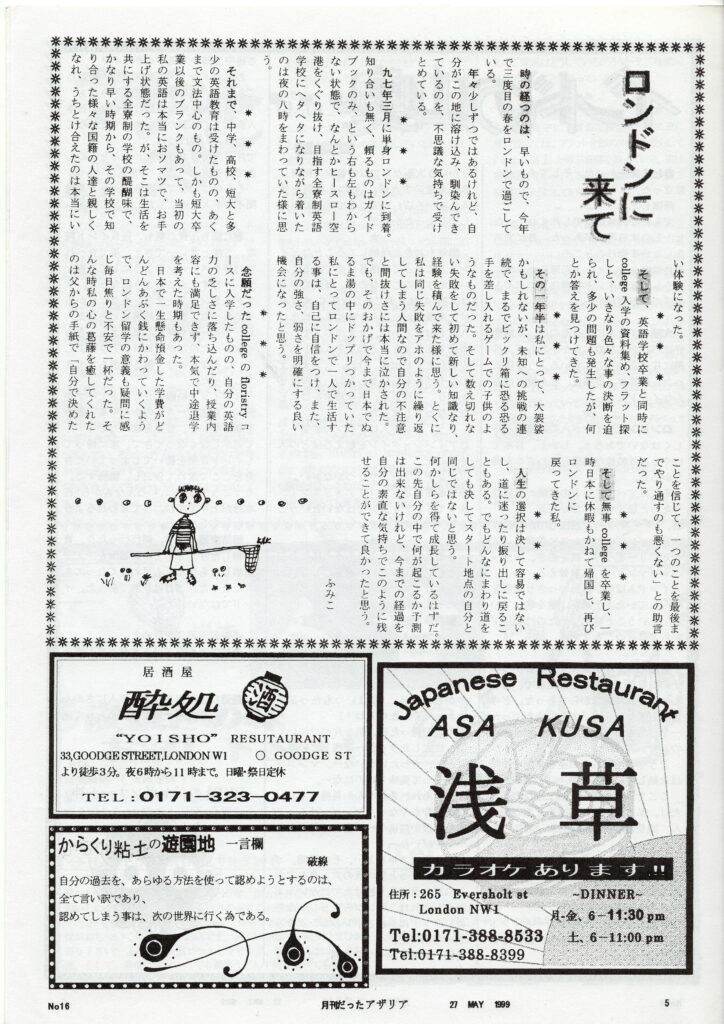 ロンドンに
来て
時の経つのは、早いもので、今年
で三度目の春をロンドンで過ごして
いる。
年々少しずつではあるけれど、自
分がこの地に溶け込み、馴染んでき
ているのを、不思議な気持ちで受け
とめている。
* * *
九七年三月に単身ロンドンに到着。
知り合いも無く、頼るものはガイド
ブックのみ、という右も左もわから
ない状態で、なんとかヒースロー空
港をくぐり抜け、目指す全寮制英語
学校にヘタヘタになりながら着いた
のは夜の八時をまわっていた様に思
う。
* * *
それまで、中学、高校、短大と多
少の英語教育は受けたものの、あく
まで文法中心のもの。しかも短大卒
業以後のブランクもあって、当初の
私の英語は本当におソマツで、お手
上げ状態だった。が、そこは生活を
共にする全寮制の学校の醍醐味で、
かなり早い時期から、その学校で知
り合った様々な国籍の人達と親しく
なれ、うちとけ合えたのは本当にい
い体験になった。
* * *
そして、英語学校卒業と同時に
college入学の資料集め、フラット探
しと、いきなり色々な事の決断を迫
られ、多少の問題も発生したが、何
とか答えを見つけてきた。
* * *
その一年半は私にとって、大袈裟
かもしれないが、未知への挑戦の連
続で、まるでビックリ箱に恐る恐る
手を差し入れるゲームでの子供のよ
うなものだった。そして数え切れな
い失敗をして初めて新しい知識なり、
経験を積んで来た様に思う。とくに
私は同じ失敗をアホのように繰り返
してしまう人間なので自分の不注意
と間抜けさには本当に泣かされた。
でも、そのおかげで今まで日本でぬ
るま湯の中にドップリつかっていた
私にとってロンドンで一人で生活す
る事は、自己に自信をつけ、また、
自分の強さ、弱さを明確にする良い
機会になったと思う。
* * *
念願だったcollegeのfloristryコ
ースに入学したものの、自分の英語
力の乏しさに落ち込んだり、授業内
容にも満足できず、本気で中途退学
を考えた時期もあった。
日本で一生懸命預金した学費がど
んどんあぶく銭にかわっていくよう
で、ロンドン留学の意義も疑問に感
じ毎日焦りと不安で一杯だった。そ
んな時私の心の葛藤を癒してくれた
のは父からの手紙で「自分で決めた
ことを信じて、一つのことを最後ま
でやり通すのも悪くない」との助言
だった。
* * *
そして無事collegeを卒業し、一
時日本に休暇もかねて帰国し、再び
ロンドンに
戻ってきた私。
* * *
人生の選択は決して容易ではない
し、道に迷ったり振り出しに戻るこ
ともある。でもどんなにまわり道を
しても決してスタート地点の自分と
同じではないと思う。
何かしらを得て成長しているはずだ。
この先自分の中で何が起こるか予測
は出来ないけれど、今までの経過を
自分の素直な気持ちでこのように残
せることができて良かったと思う。
ふみこ
居酒屋
酔処
酒
“YOISHO” RESUTAURANT
33,GOODGE STREET,LONDON W1 ○ GOODGE ST
より徒歩3分。夜6時から11時まで。日曜・祭日定休
TEL:0171-323-0477
からくり粘土の遊園地 一言欄
破線
自分の過去を、あらゆる方法を使って認めようとするのは、
全て言い訳であり、
認めてしまう事は、次の世界に行く為である。
Japanese Restaurant
ASA KUSA
浅草
カラオケあります!!
住所:265 Eversholt st
London NW1
Tel:0171-388-8533
Tel:0171-388-8399
~DINNER~
月-金、6-11:30 pm
土、6-11:00 pm
No16
月刊だったアザリア 27 MAY 1999
5